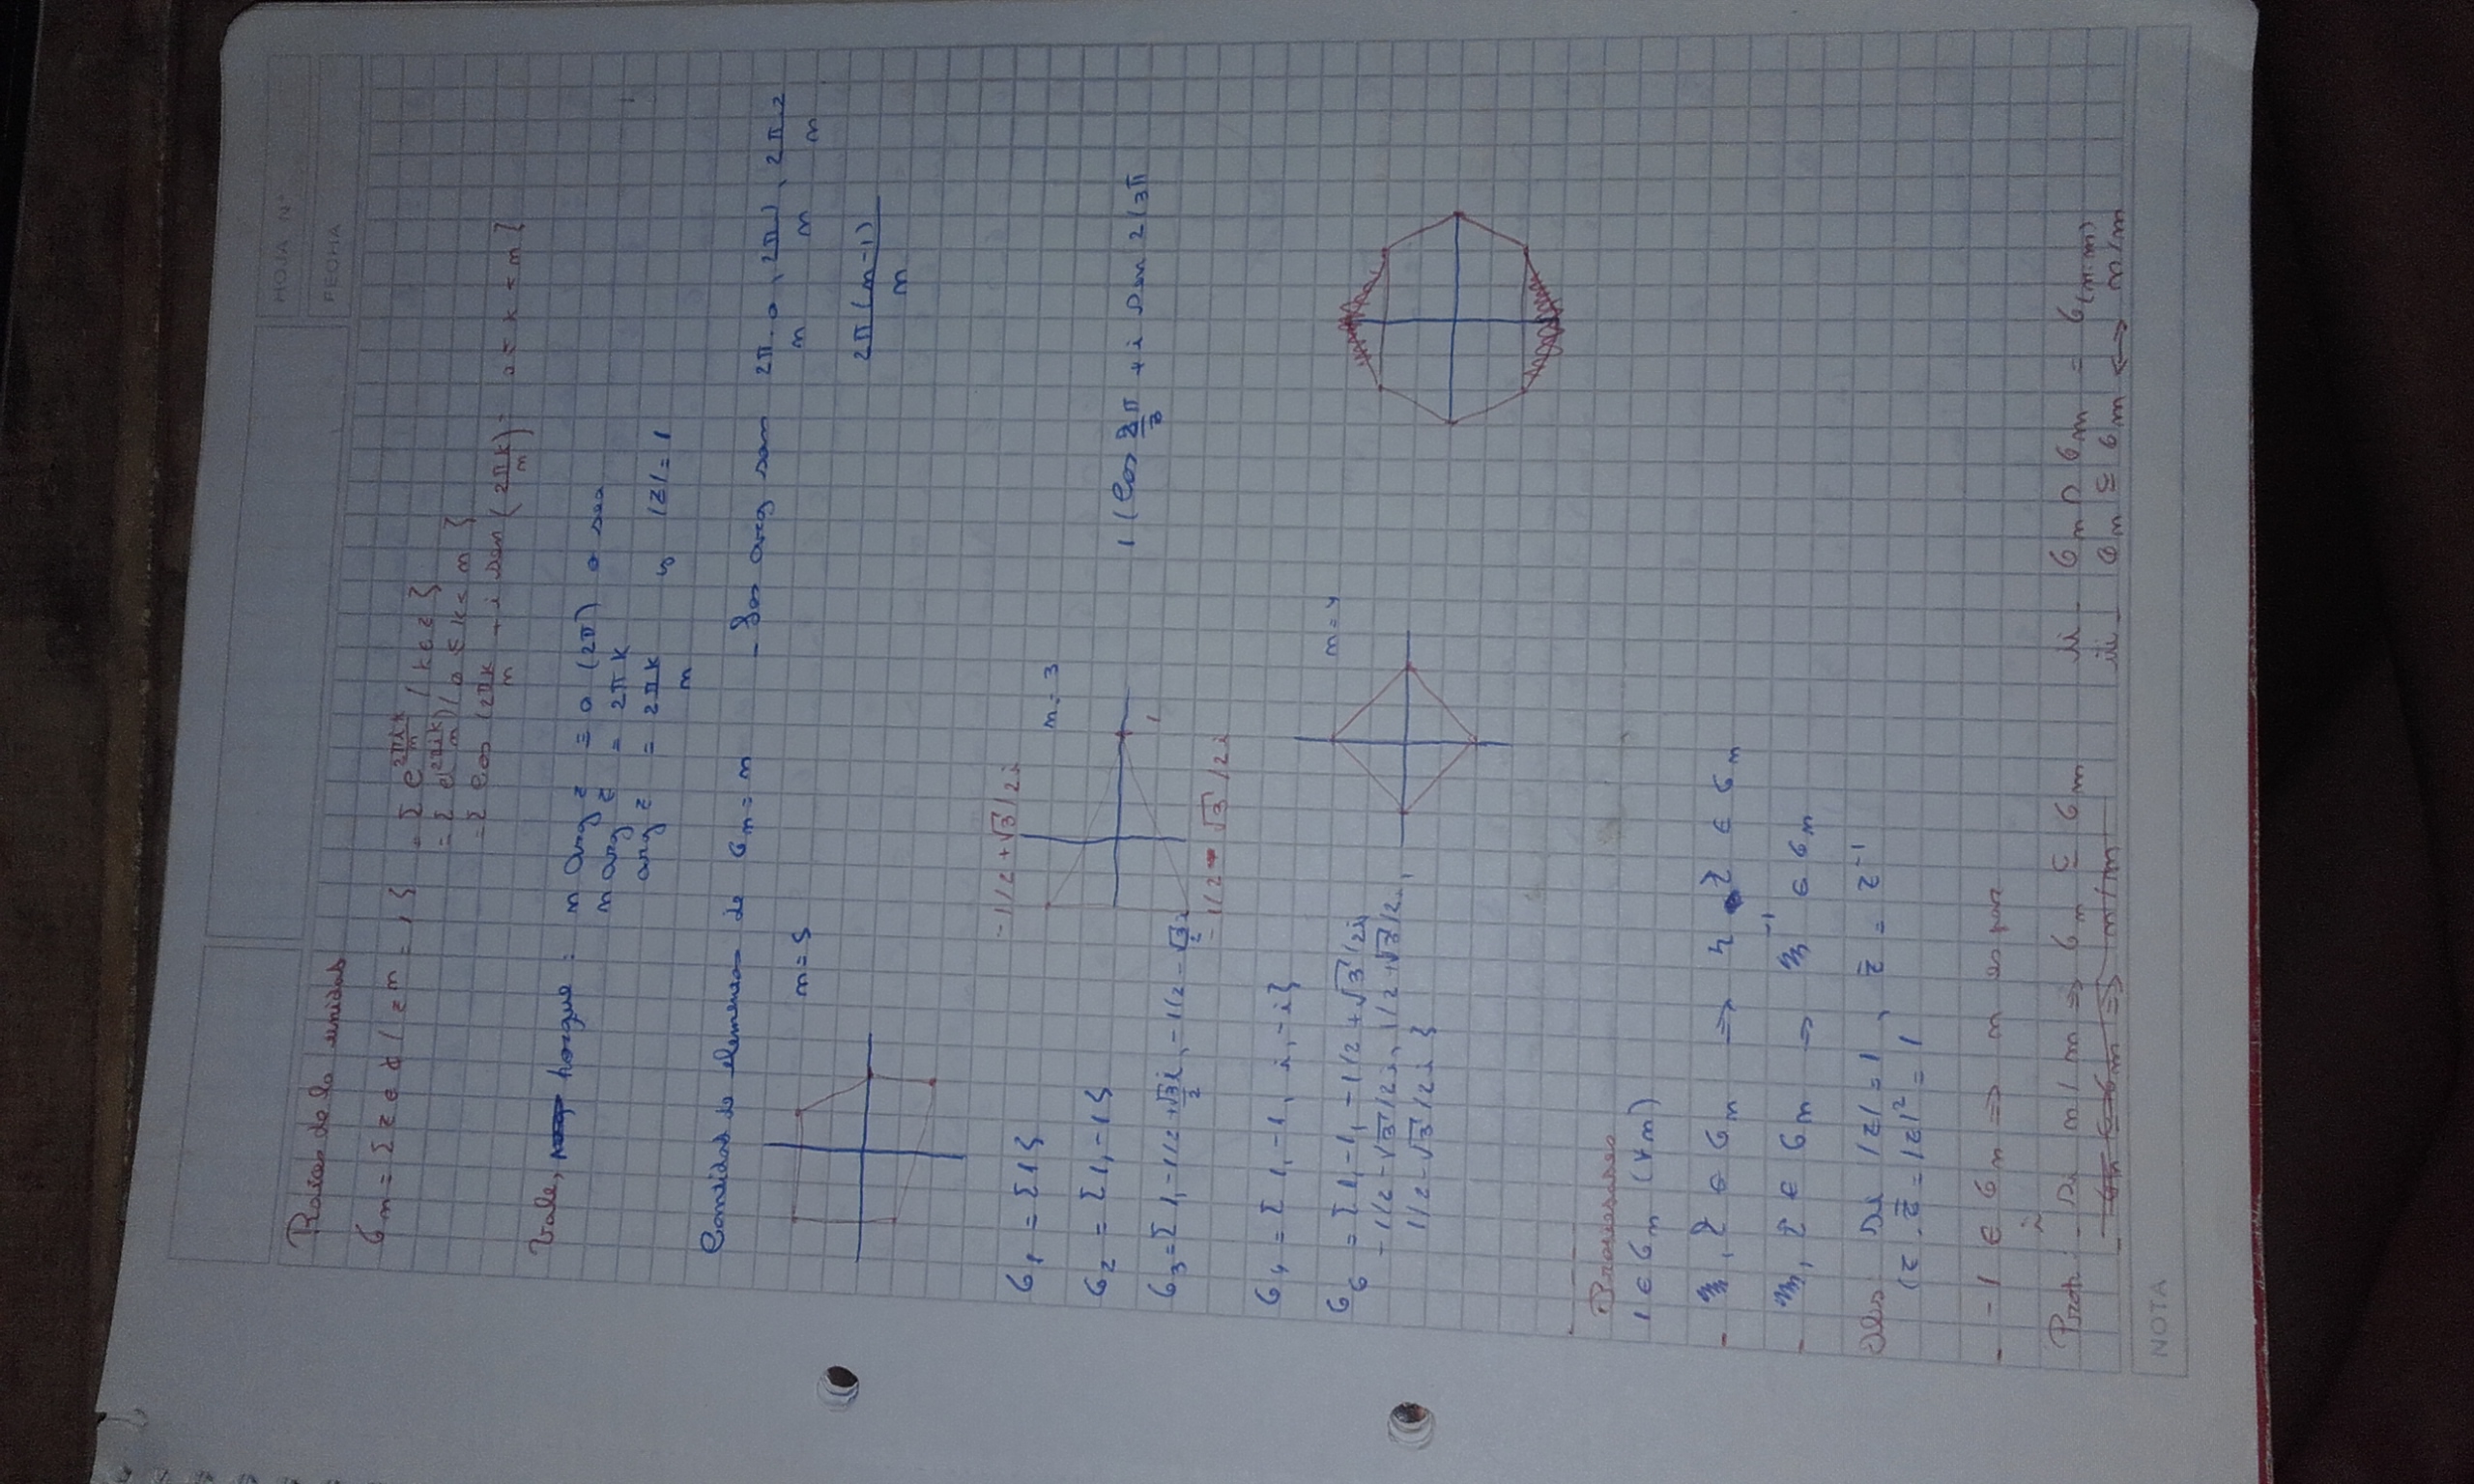 HOJA N°
FECHA
Raices de la unidad
G_n = { z ∈ ℂ / z^n = 1 } = { e^(2πik/n) / k ∈ Z }
= { e^(2πik/n) / 0 ≤ k < n }
= { Cos (2πk/n + i sen (2πk/n) : 0 ≤ k < n }
Vale, porque : n arg z ≡ 0 (2π) o sea
n arg z = 2πk
arg z = 2πk/n y |z| = 1
Cantidad de elementos de G_n = n - Los arg son 2π.0/n, 2π.1/n, 2π.2/n
2π(n-1)/n
n = 5
-1/2 + √3/2i
G_1 = {1}
n = 3
G_2 = {1, -1}
1 (Cos 2/3 π + i sen 2/3π
1
G_3 = { 1, -1/2 + √3/2 i, -1/2 - √3/2 i
-1/2 - √3/2i
G_4 = { 1, -1, i, -i}
n = 4
G_6 = { 1, -1, -1/2 + √3/2i
-1/2 - √3/2i, 1/2 + √3/2.,
1/2 - √3/2i }
1 ∈ G_n (∀n)
- , ξ ∈ G_n ⇒ η . ξ ∈ G_n
- , ξ ∈ G_n ⇒ ^-1 ∈ G_n
Obs: Si |z| = 1, z̄ = z^-1
(z . z̄ = |z|² = 1
- -1 ∈ G_n ⇒ n es par
i
Prop: - Si n/m ⇒ G_n ⊆ G_m ii- G_n ∩ G_m = G_(n:m)
- G_n ⊆ G_m ⇒ n/m iii- G_n ⊆ G_m ⟺ n/m
NOTA